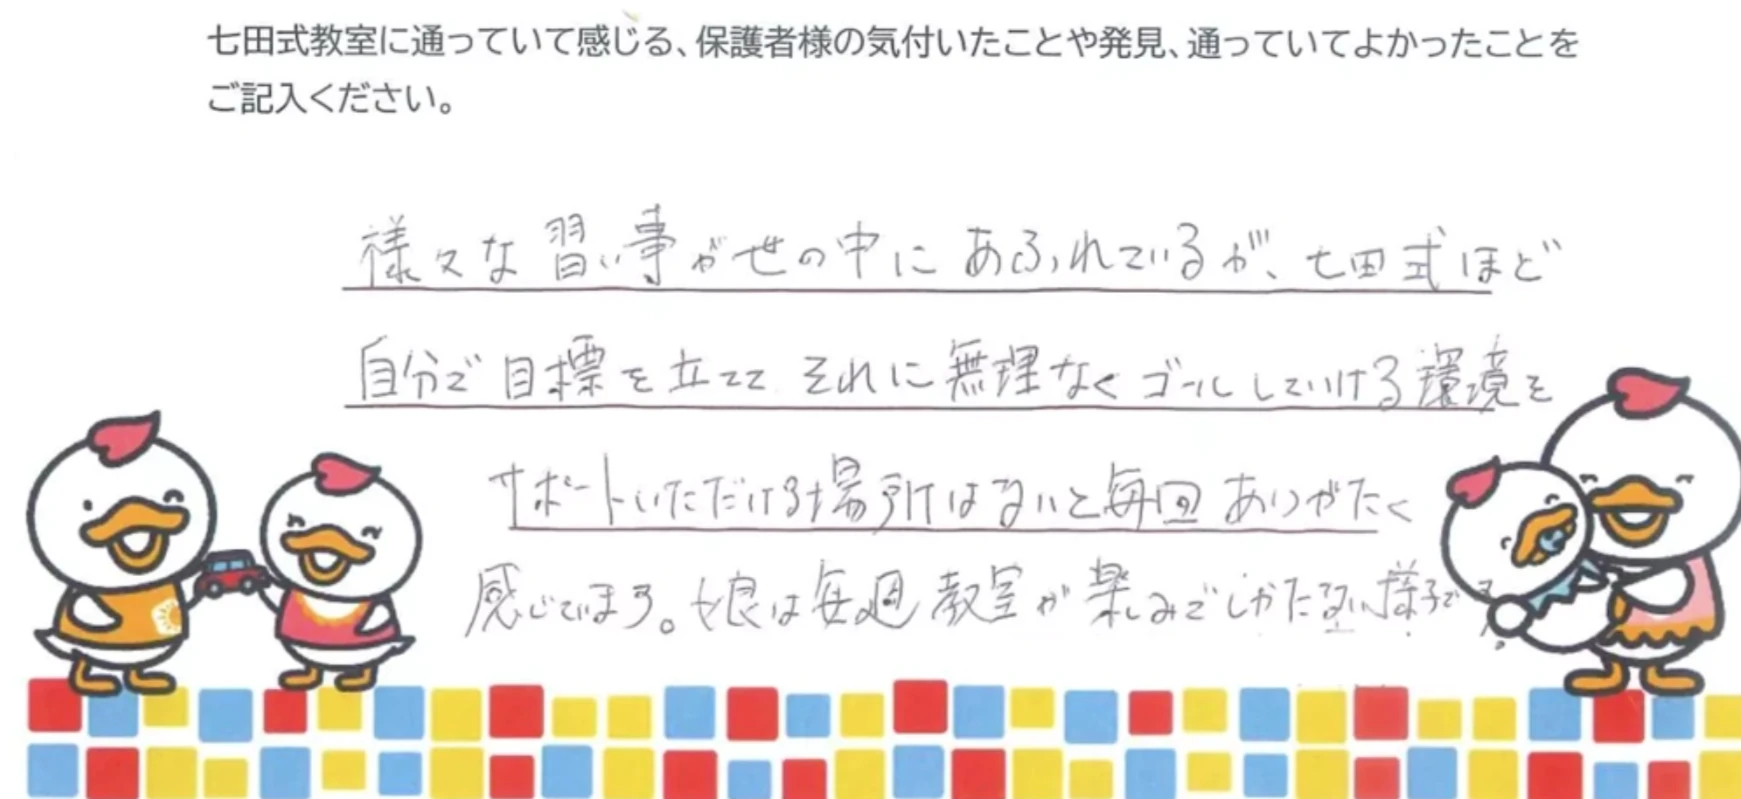 七田式教室に通っていて感じる、保護者様の気付いたことや発見、通っていてよかったことを
ご記入ください。
様々な習い事が世の中にあふれているが、七田式ほど
自分で目標を立てて それに無理なくゴールしていける環境を
サポートいただける場所はないと毎回ありがたく
感じています。娘は毎週教室が楽しみでしかたない様子です